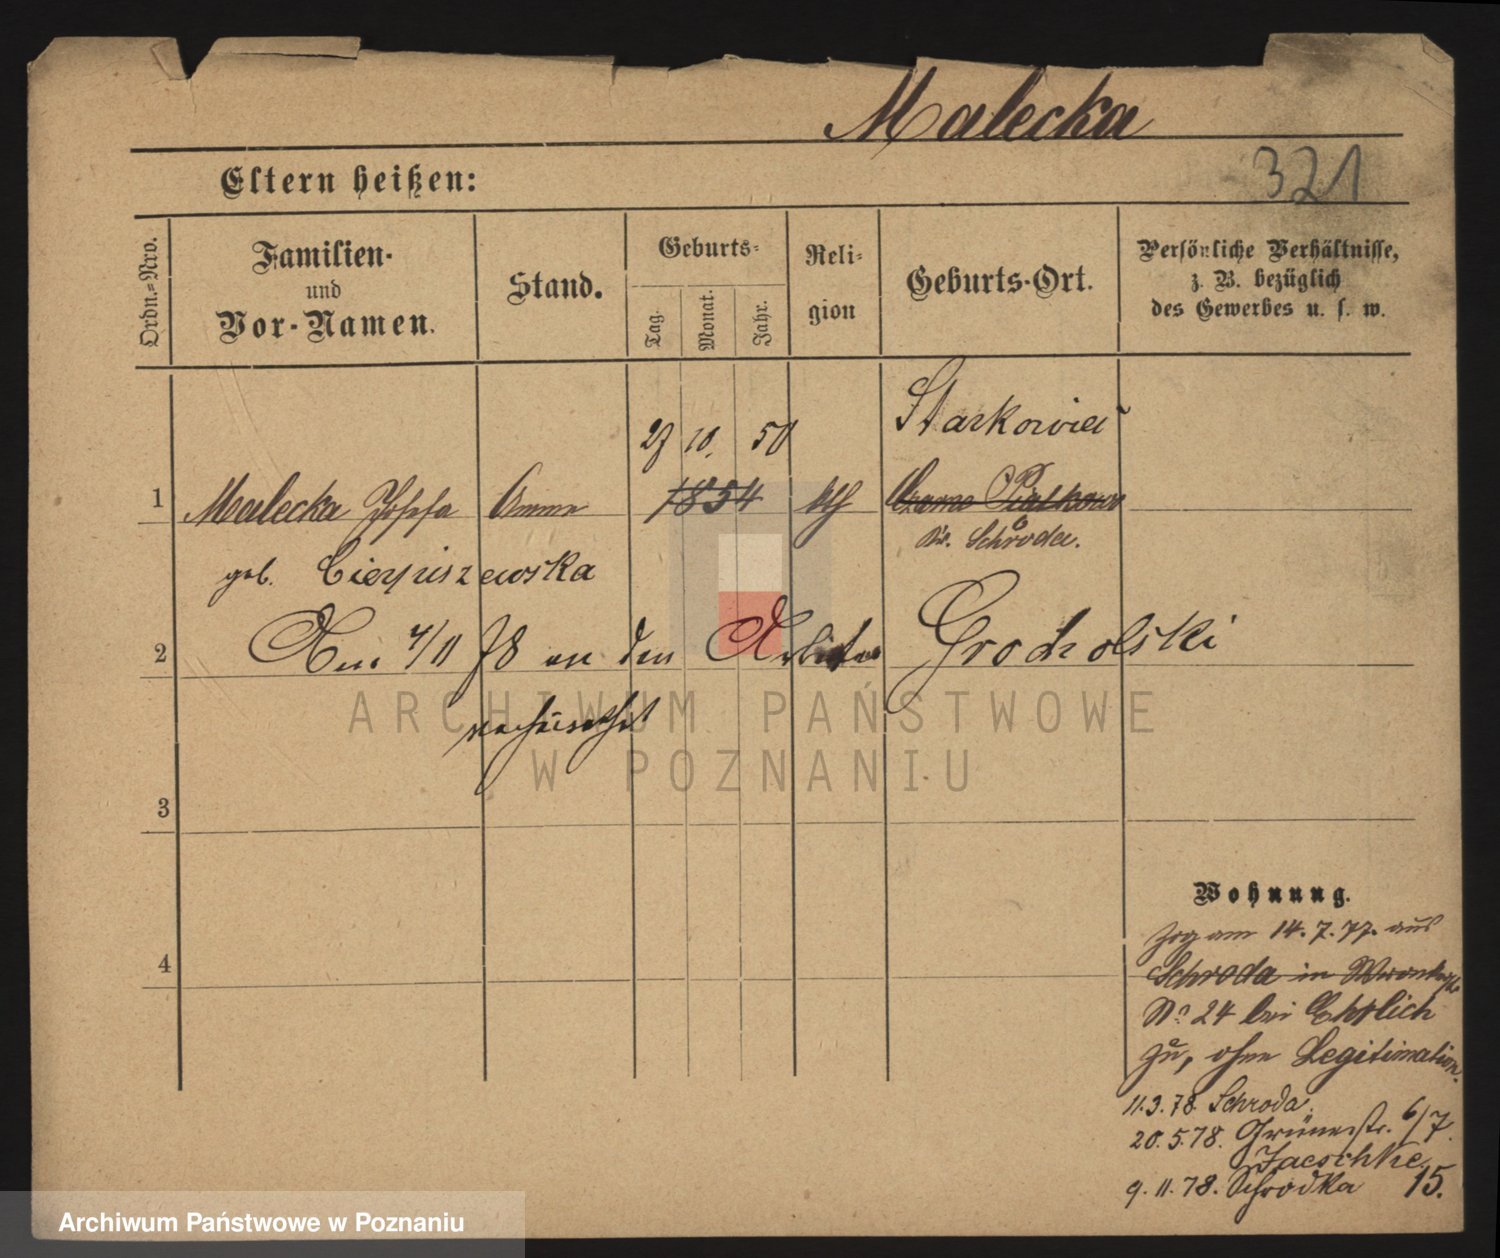 Malecka
321
Eltern heißen:
Ordn.-Nro.
Familien- und Vor-Namen.
Stand.
Geburts-
Tag.
Monat.
Jahr.
Religion
Geburts-Ort.
Persönliche Verhältnisse, z. B. bezüglich des Gewerbes u. s. w.
Starkowiec
10. 50
1 Malecka Josefa Amme 1854 kth Czarne Piatkowo
Kr. Schroda.
geb. Cierpiszewska
2 Am 4/11 78 an den Arbeiter Grocholski
verheirathet
3
4
Wohnung.
Zog am 14. 7. 77. aus
Schroda in
No 24 bei Ehrlich
zu, ohne Legitimation.
11.3.78. Schroda.
20.5.78. Grünestr. 6/7.
Jaeschke.
9.11.78. Schrodka 15.
ARCHIWUM PAŃSTWOWE
W POZNANIU
Archiwum Państwowe w Poznaniu